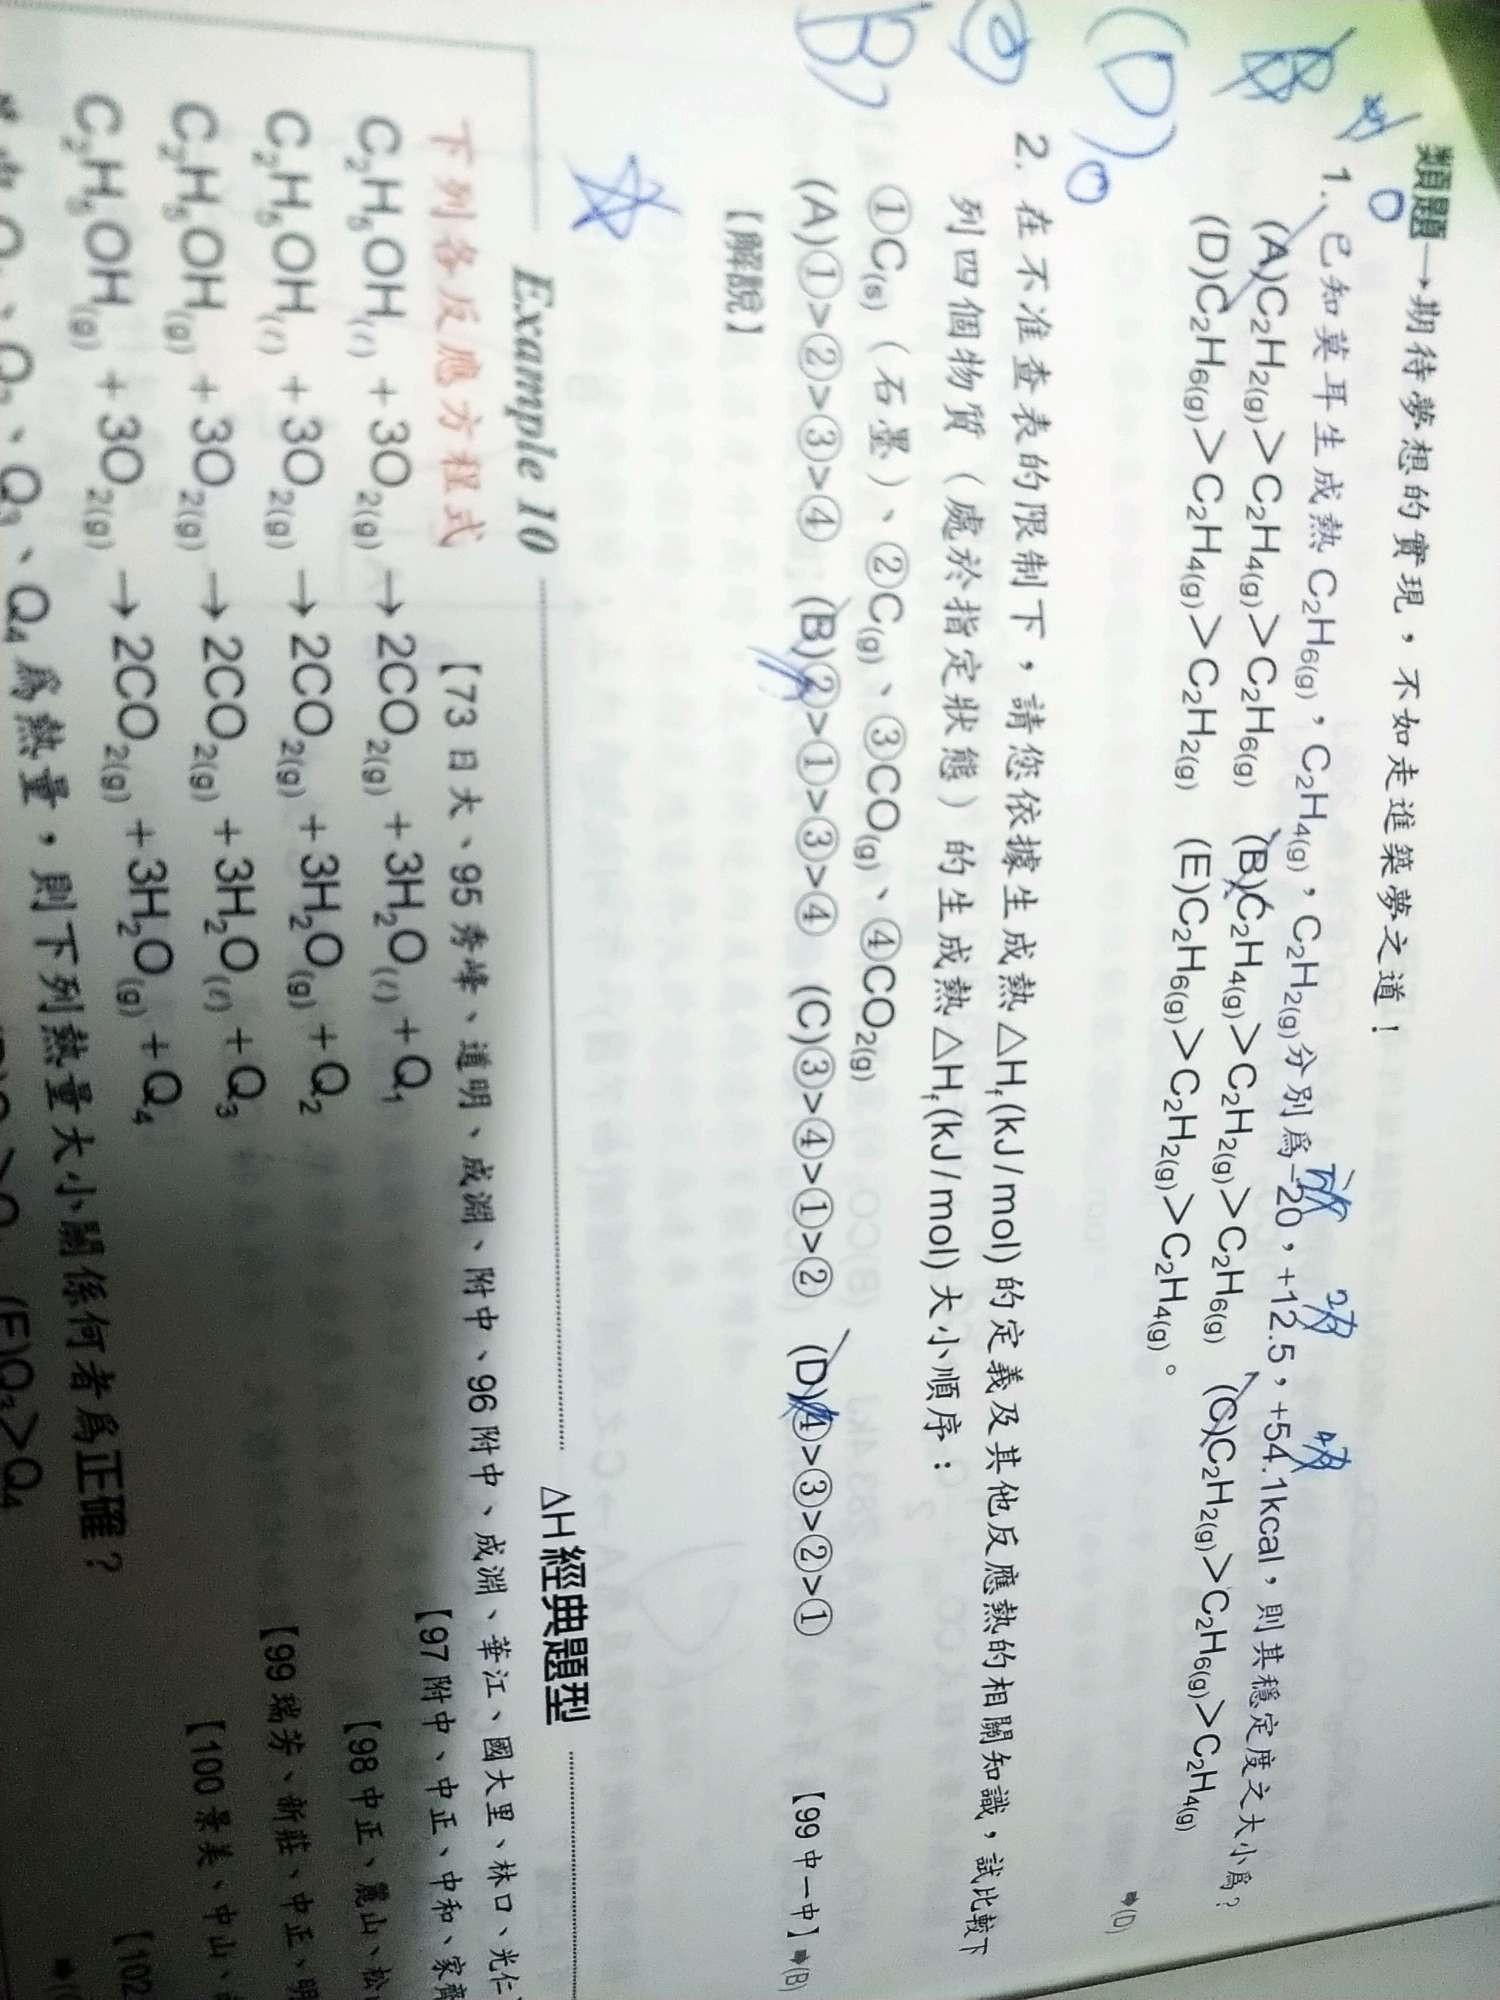 類題→期待夢想的實現，不如走進築夢之道！
1. 已知莫耳生成熱C₂H₆(g)，C₂H₄(g)，C₂H₂(g)分別為−20，+12.5，+54.1kcal，則其穩定度之大小為？
放 吸 吸
(A)C₂H₂(g)＞C₂H₄(g)＞C₂H₆(g) (B)C₂H₄(g)＞C₂H₂(g)＞C₂H₆(g) (C)C₂H₂(g)＞C₂H₆(g)＞C₂H₄(g)
(D)C₂H₆(g)＞C₂H₄(g)＞C₂H₂(g) (E)C₂H₆(g)＞C₂H₂(g)＞C₂H₄(g)。
➡(D)
(D)
2. 在不准查表的限制下，請您依據生成熱△Hf(kJ/mol)的定義及其他反應熱的相關知識，試比較下
列四個物質（處於指定狀態）的生成熱△Hf(kJ/mol)大小順序：
①C(s)（石墨）、②C(g)、③CO(g)、④CO₂(g)
(A)①>②>③>④ (B)②>①>③>④ (C)③>④>①>② (D)④>③>②>① 【99中一中】➡(B)
B
【解說】
Example 10 △H經典題型
下列各反應方程式 【73日大、95秀峰、道明、成淵、附中、96附中、成淵、華江、國大里、林口、光仁
C₂H₅OH(ℓ) + 3O₂(g) → 2CO₂(g) + 3H₂O(ℓ) + Q₁ 【97附中、中正、中和、家齊
C₂H₅OH(ℓ) + 3O₂(g) → 2CO₂(g) + 3H₂O(g) + Q₂ 【98中正、麗山、松
C₂H₅OH(g) + 3O₂(g) → 2CO₂(g) + 3H₂O(ℓ) + Q₃ 【99瑞芳、新莊、中正、明
C₂H₅OH(g) + 3O₂(g) → 2CO₂(g) + 3H₂O(g) + Q₄ 【100景美、中山、
【102
、Q₃、Q₄為熱量，則下列熱量大小關係何者為正確？
(E)Q₃＞Q₄